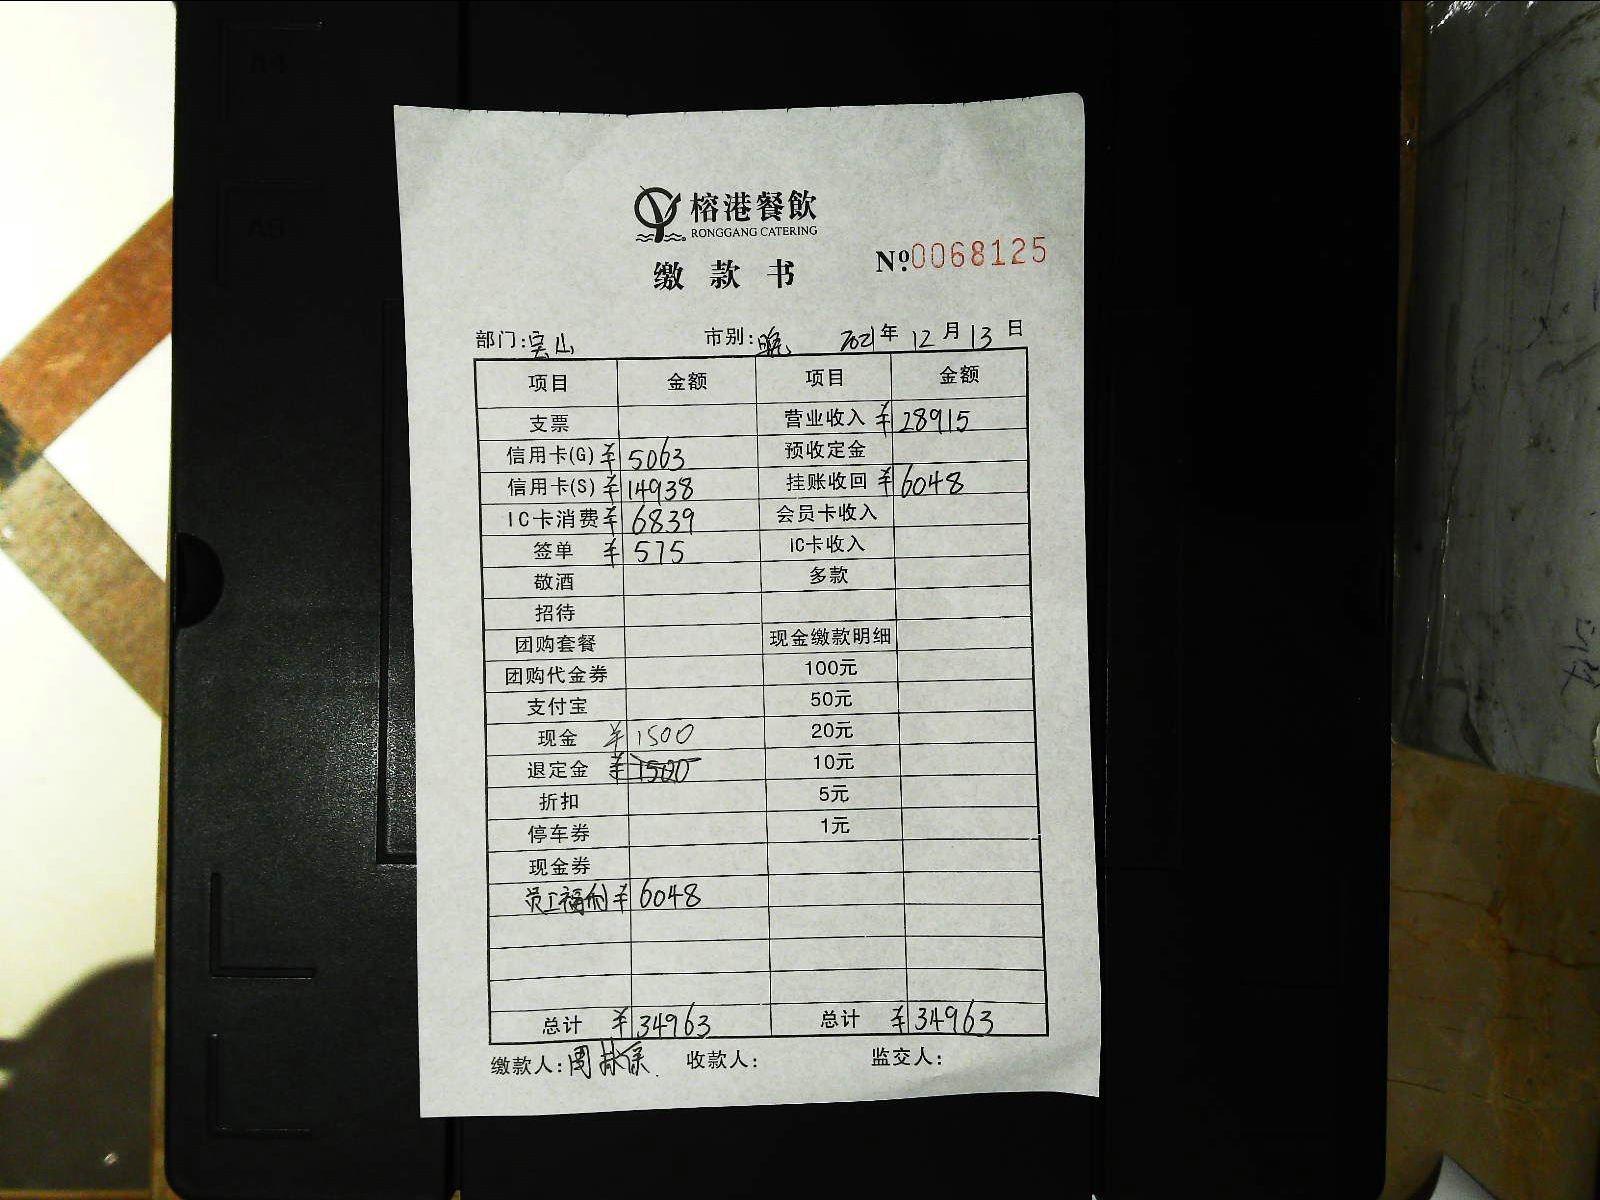 A4
A5
榕港餐飲
RONGGANG CATERING
缴款书 Nº.0068125
部门:宝山 市别:晚 2021年12月13日
项目 金额 项目 金额
支票 营业收入 ¥28915
信用卡(G) ¥5063 预收定金
信用卡(S) ¥14938 挂账收回 ¥6048
IC卡消费 ¥6839 会员卡收入
签单 ¥575 IC卡收入
敬酒 多款
招待
团购套餐 现金缴款明细
团购代金券 100元
支付宝 50元
现金 ¥1500 20元
退定金 ¥1500 10元
折扣 5元
停车券 1元
现金券
员工福利 ¥6048
总计 ¥34963 总计 ¥34963
缴款人:周 收款人: 监交人: